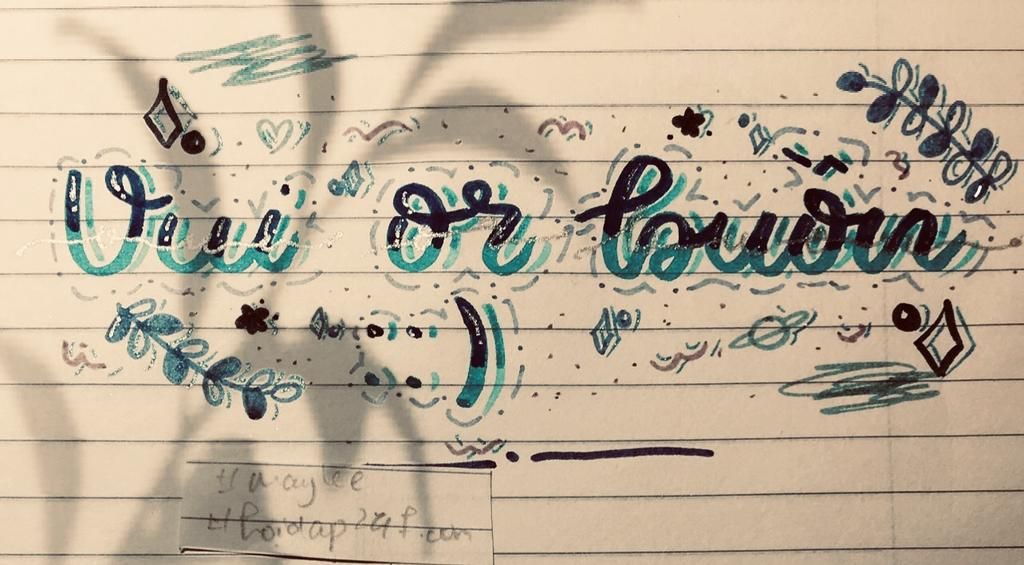 Vui or buồn
:)
#maylee
#hoidap247.com